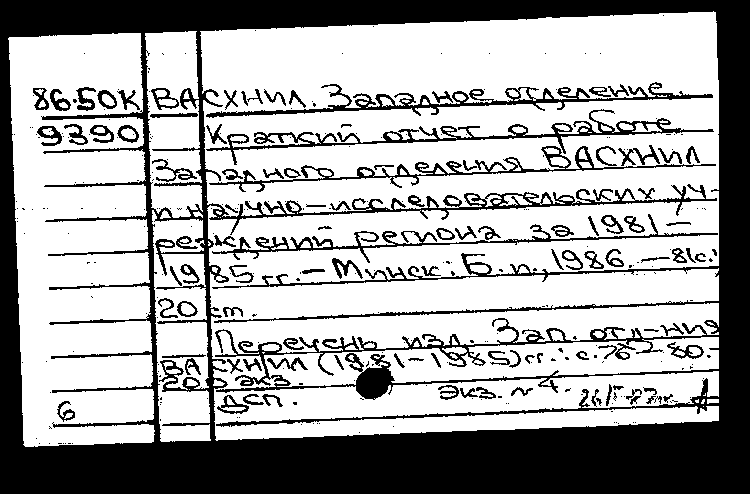 86-50К ВАСХНИЛ. Западное отделение.
9390 Краткий отчет о работе
Западного отделения ВАСХНИЛ
и научно-исследовательских уч-
реждений региона за 1981-
1985 гг. - Минск: Б.и., 1986. - 81с.;
20 см.
Перечень изд. Зап. отд-ния
ВАСХНИЛ (1981-1985) гг.: с. 76-80. -
200 экз.
ДСП. экз. № 4.
6